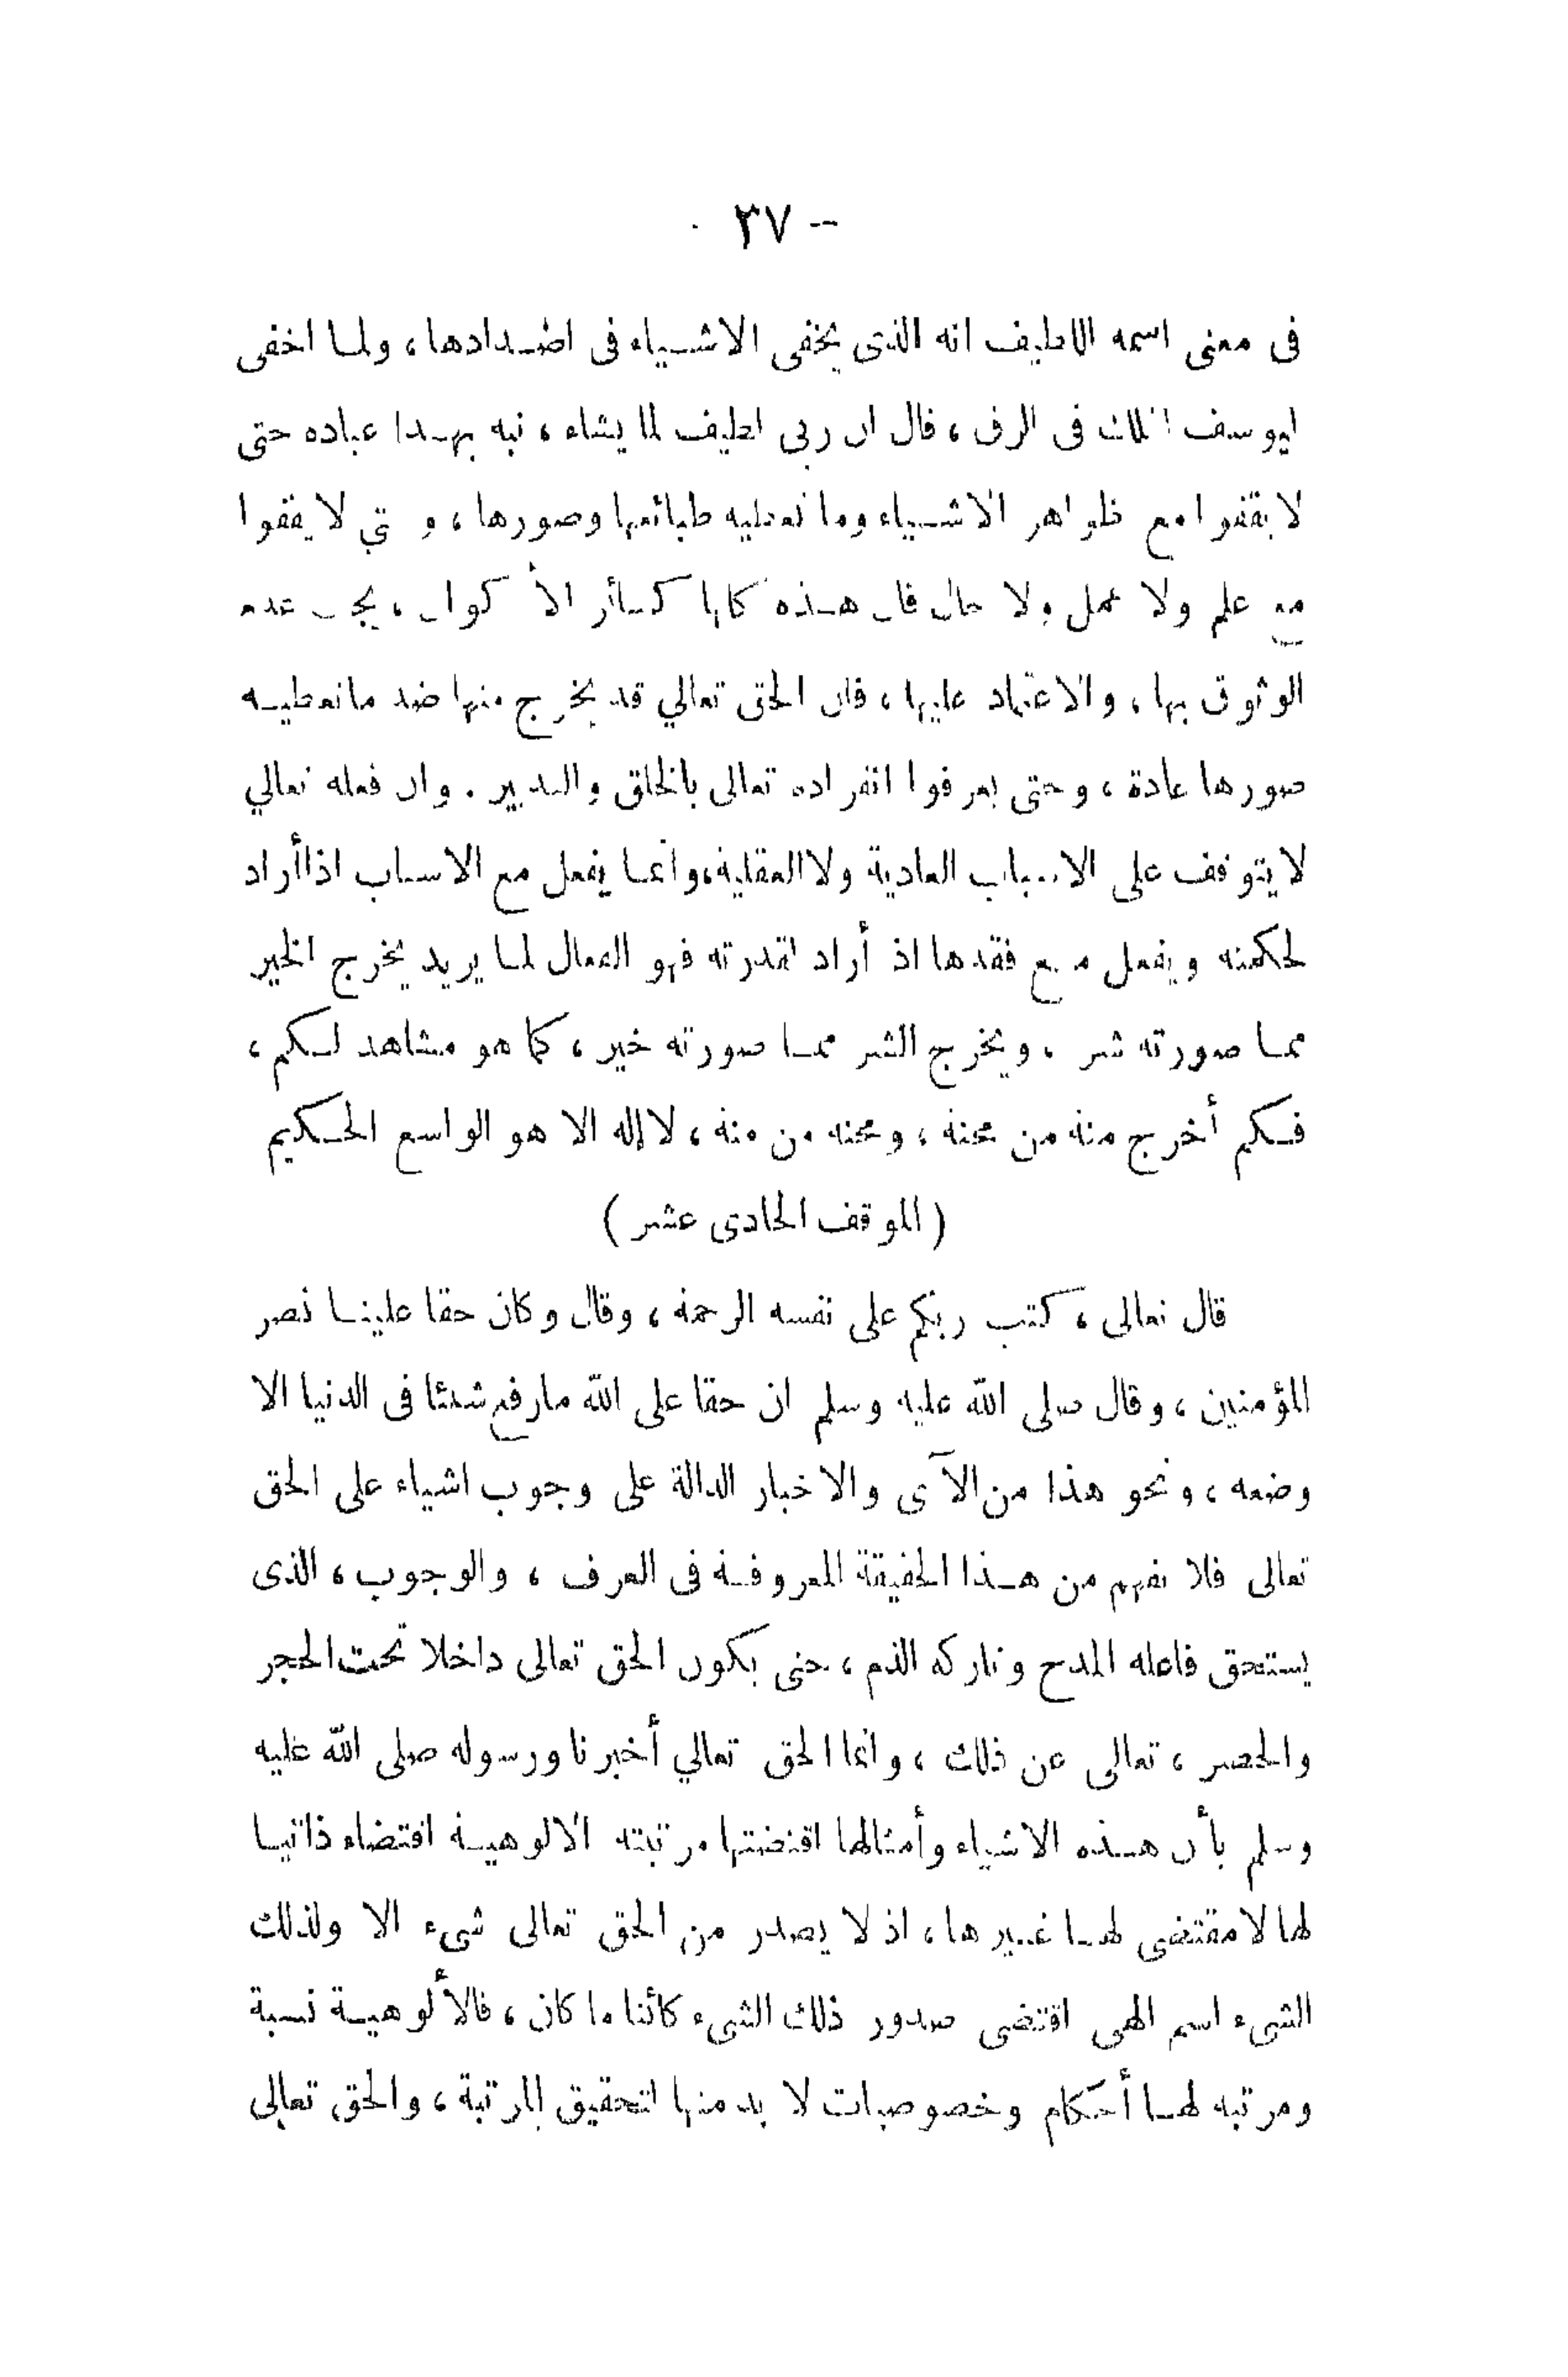 - ٣٧ -
فى معنى اسمه اللطيف انه الذى يخفى الاشياء فى اضدادها، ولما اخفى
ليوسف الملك فى الرق، قال ان ربى لطيف لما يشاء، نبه بهذا عباده حتى
لا يقفوا مع ظواهر الاشياء وما تعطيه طبائعها وصورها، وحتى لا يقفوا
مع علم ولا عمل ولا حال فان هذه كلها كسائر الأكوان، يجب عدم
الوثوق بها، والاعتماد عليها، فان الحق تعالي قد يخرج منها ضد ما تعطيه
صورها عادة، وحتى يعرفوا انفراده تعالى بالخلق والتدبير. وان فعله تعالي
لا يتوقف على الاسباب العادية ولا العقلية، وانما يفعل مع الاسباب اذا أراد
لحكمته ويفعل مع فقدها اذ أراد لقدرته فهو الفعال لما يريد يخرج الخير
مما صورته شر، ويخرج الشر مما صورته خير، كما هو مشاهد لكم،
فكم أخرج منه من محنة، ومحنه من منة، لا إله الا هو الواسع الحكيم
(الموقف الحادى عشر)
قال تعالى، كتب ربكم على نفسه الرحمة، وقال وكان حقا علينا نصر
المؤمنين، وقال صلى الله عليه وسلم ان حقا على الله مارفع شيئا فى الدنيا الا
وضعه، ونحو هذا من الآى والاخبار الدالة على وجوب اشياء على الحق
تعالى فلا نفهم من هذا الحقيقة المعروفة فى العرف، والوجوب، الذى
يستحق فاعله المدح وتاركه الذم، حتى يكون الحق تعالى داخلا تحت الحجر
والحصر، تعالى عن ذلك، وانما الحق تعالي أخبرنا ورسوله صلى الله عليه
وسلم بأن هذه الاشياء وأمثالها اقتضتها مرتبته الالوهية اقتضاء ذاتيا
لها لا مقتضى لها غيرها، اذ لا يصدر من الحق تعالى شىء الا ولذلك
الشىء اسم الهى اقتضى صدور ذلك الشىء كائنا ما كان، فالألوهية نسبة
ومرتبه لها أحكام وخصوصيات لا بد منها لتحقيق المرتبة، والحق تعالى